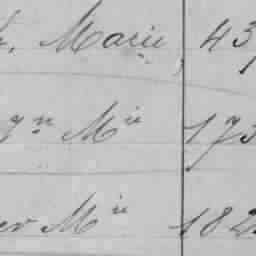 Marie, 43
gⁿ Mⁱᵉ 173
er Mⁱᵉ 182